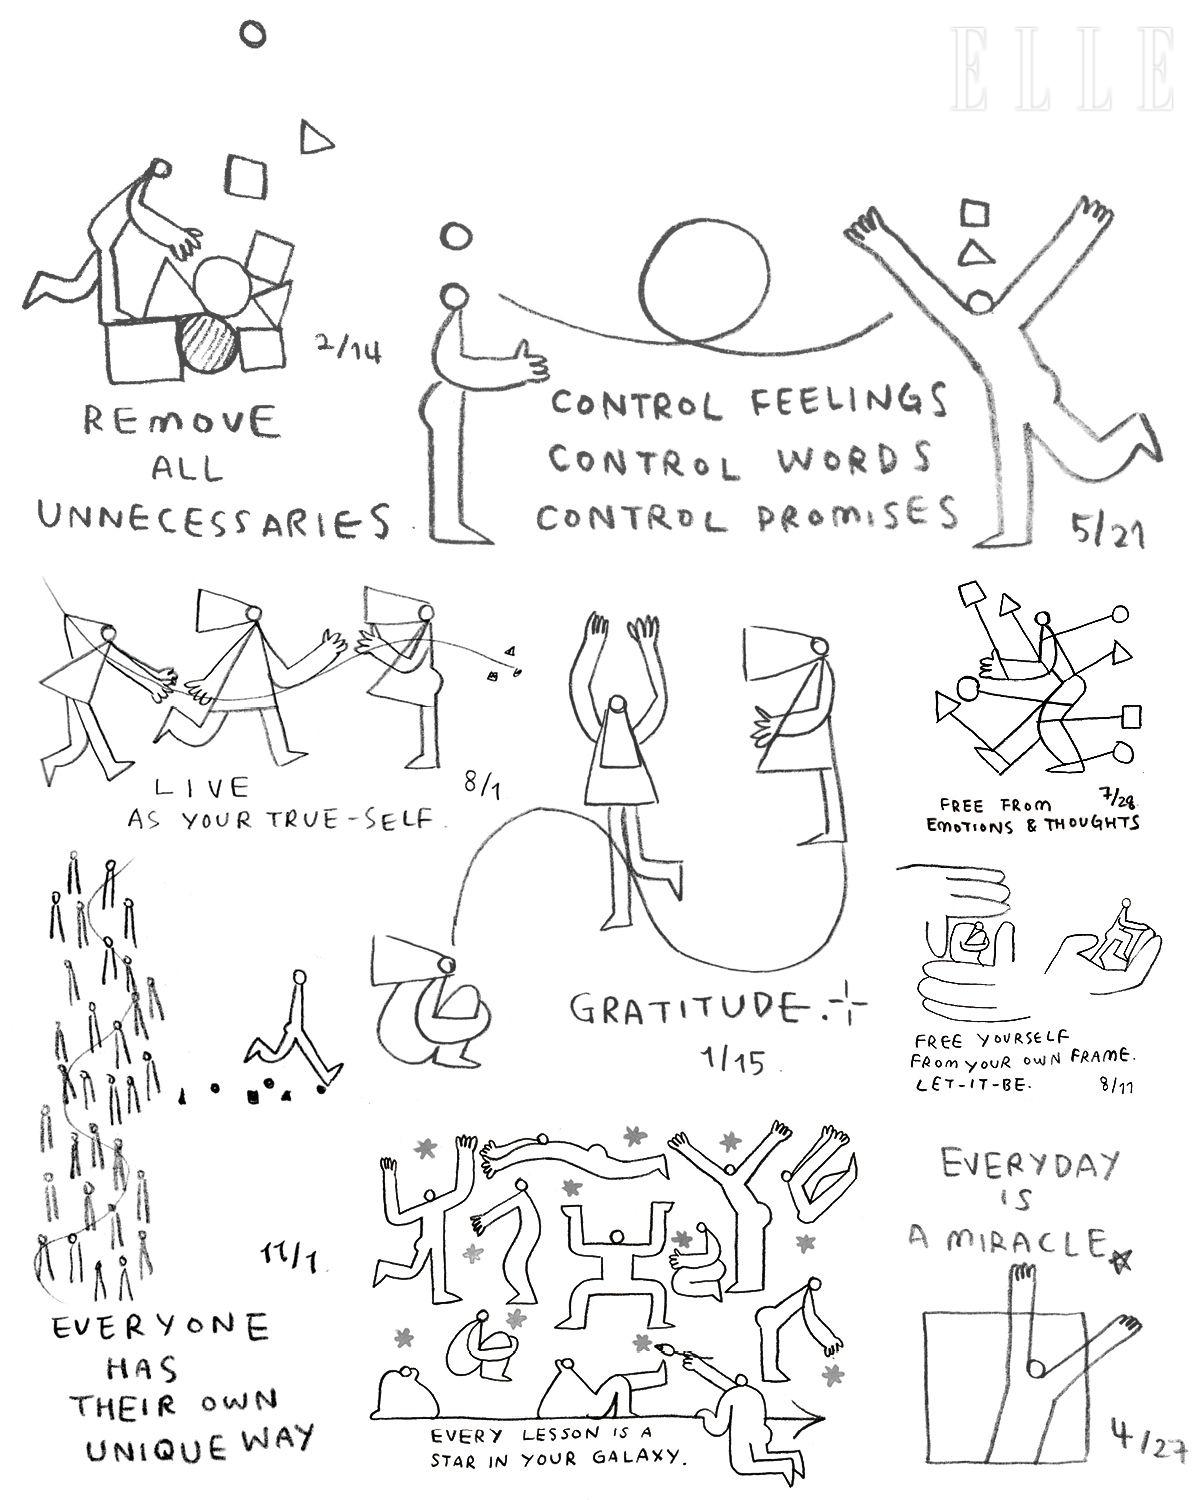 ELLE
2/14
REMOVE
ALL
UNNECESSARIES.
CONTROL FEELINGS
CONTROL WORDS
CONTROL PROMISES
5/21
LIVE
AS YOUR TRUE-SELF.
8/1
GRATITUDE.
1/15
FREE FROM
EMOTIONS & THOUGHTS
7/28
FREE YOURSELF
FROM YOUR OWN FRAME.
LET-IT-BE.
8/11
11/1
EVERYONE
HAS
THEIR OWN
UNIQUE WAY
EVERY LESSON IS A
STAR IN YOUR GALAXY.
EVERYDAY
IS
A MIRACLE
4/27